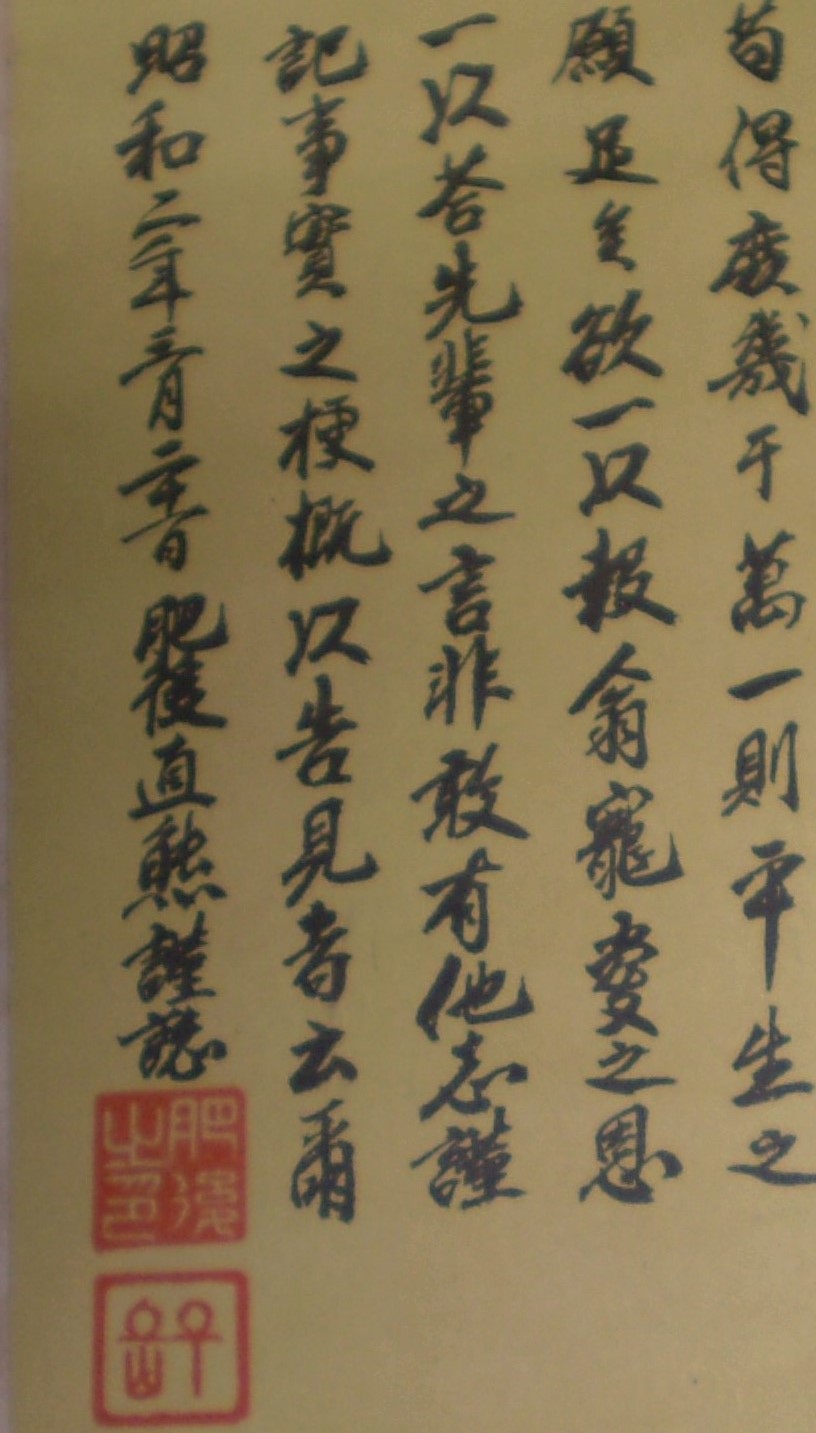 苟得庶幾于萬一則平生之
願足矣欲一以報翁寵愛之恩
一以荅先輩之言非敢有他志謹
記事實之梗概以告見者云爾
昭和二年三月二十日 肥後直熊謹誌
肥後之印